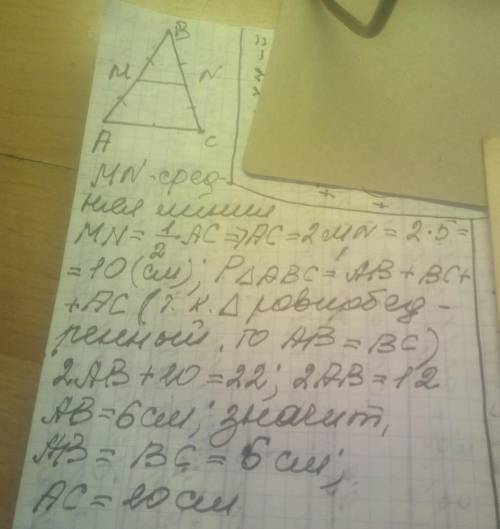 B
M N
A C
MN-сред-
няя линия
MN = 1/2 AC ⇒ AC = 2MN = 2·5 =
= 10 (см); P△ABC = AB + BC +
+ AC (т.к. △ равнобед-
ренный, то AB = BC)
2AB + 10 = 22; 2AB = 12
AB = 6 см; значит,
AB = BC = 6 см;
AC = 10 см